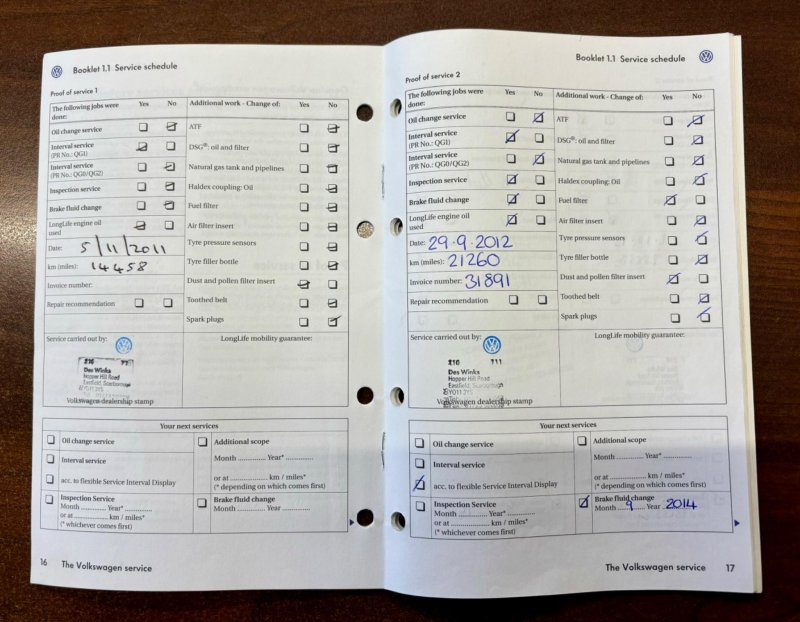 Booklet 1.1 Service schedule
Proof of service 1
The following jobs were done: Yes No
Oil change service
Interval service
(PR No.: QG1)
Interval service
(PR No.: QG0/QG2)
Inspection service
Brake fluid change
LongLife engine oil
used
Date: 5/11/2011
km (miles): 14458
Invoice number:
Repair recommendation
Additional work - Change of: Yes No
ATF
DSG®: oil and filter
Natural gas tank and pipelines
Haldex coupling: Oil
Fuel filter
Air filter insert
Tyre pressure sensors
Tyre filler bottle
Dust and pollen filter insert
Toothed belt
Spark plugs
Service carried out by:
Des Winks
Hopper Hill Road
Eastfield, Scarborough
Volkswagen dealership stamp
LongLife mobility guarantee:
Your next services
Oil change service
Interval service
acc. to flexible Service Interval Display
Inspection Service
Month .......... Year* ..............
or at ...................... km / miles*
(* whichever comes first)
Additional scope
Month .......... Year* ..............
or at ...................... km / miles*
(* depending on which comes first)
Brake fluid change
Month .......... Year ..............
16 The Volkswagen service
Booklet 1.1 Service schedule
Proof of service 2
The following jobs were
done: Yes No
Oil change service
Interval service
(PR No.: QG1)
Interval service
(PR No.: QG0/QG2)
Inspection service
Brake fluid change
LongLife engine oil
used
Date: 29.9.2012
km (miles): 21260
Invoice number: 31891
Repair recommendation
Additional work - Change of: Yes No
ATF
DSG®: oil and filter
Natural gas tank and pipelines
Haldex coupling: Oil
Fuel filter
Air filter insert
Tyre pressure sensors
Tyre filler bottle
Dust and pollen filter insert
Toothed belt
Spark plugs
Service carried out by:
Des Winks
Hopper Hill Road
Eastfield, Scarborough
Volkswagen dealership stamp
LongLife mobility guarantee:
Your next services
Oil change service
Interval service
acc. to flexible Service Interval Display
Inspection Service
Month .......... Year* ..............
or at ...................... km / miles*
(* whichever comes first)
Additional scope
Month .......... Year* ..............
or at ...................... km / miles*
(* depending on which comes first)
Brake fluid change
Month 9 Year 2014
The Volkswagen service 17